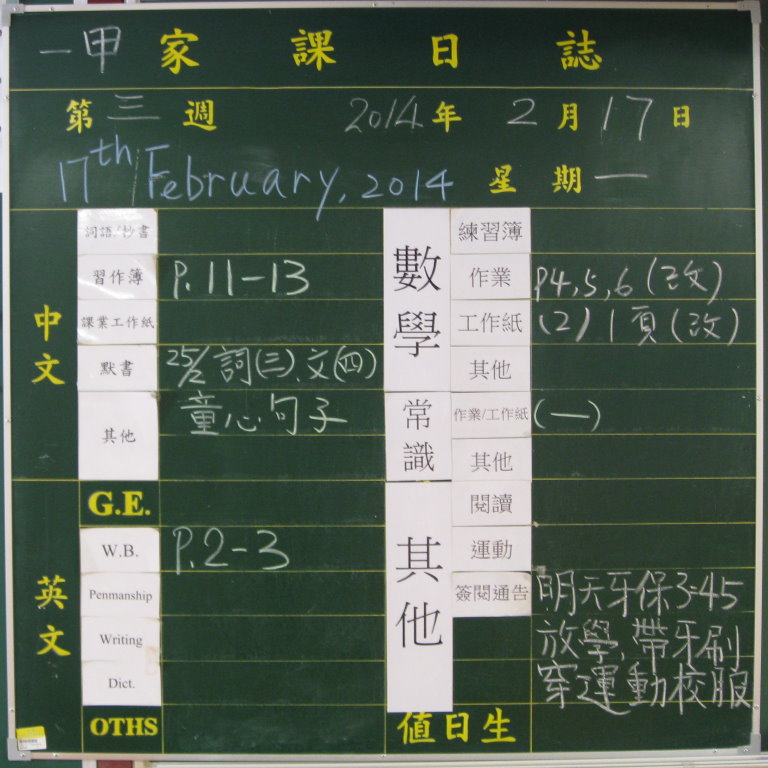 一甲 家課日誌
第三週 2014年 2月17日
17th February, 2014 星期一
中文
詞語/抄書
習作簿 P.11-13
課業工作紙
默書 25/2 詞(三)、文(四)
其他 童心句子
英文
G.E.
W.B. P.2-3
Penmanship
Writing
Dict.
OTHS
數學
練習簿
作業 P4,5,6(改)
工作紙 (2) 1頁(改)
其他
常識
作業/工作紙 (一)
其他
其他
閱讀
運動
簽閱通告 明天牙保3:45
放學,帶牙刷
穿運動校服
值日生